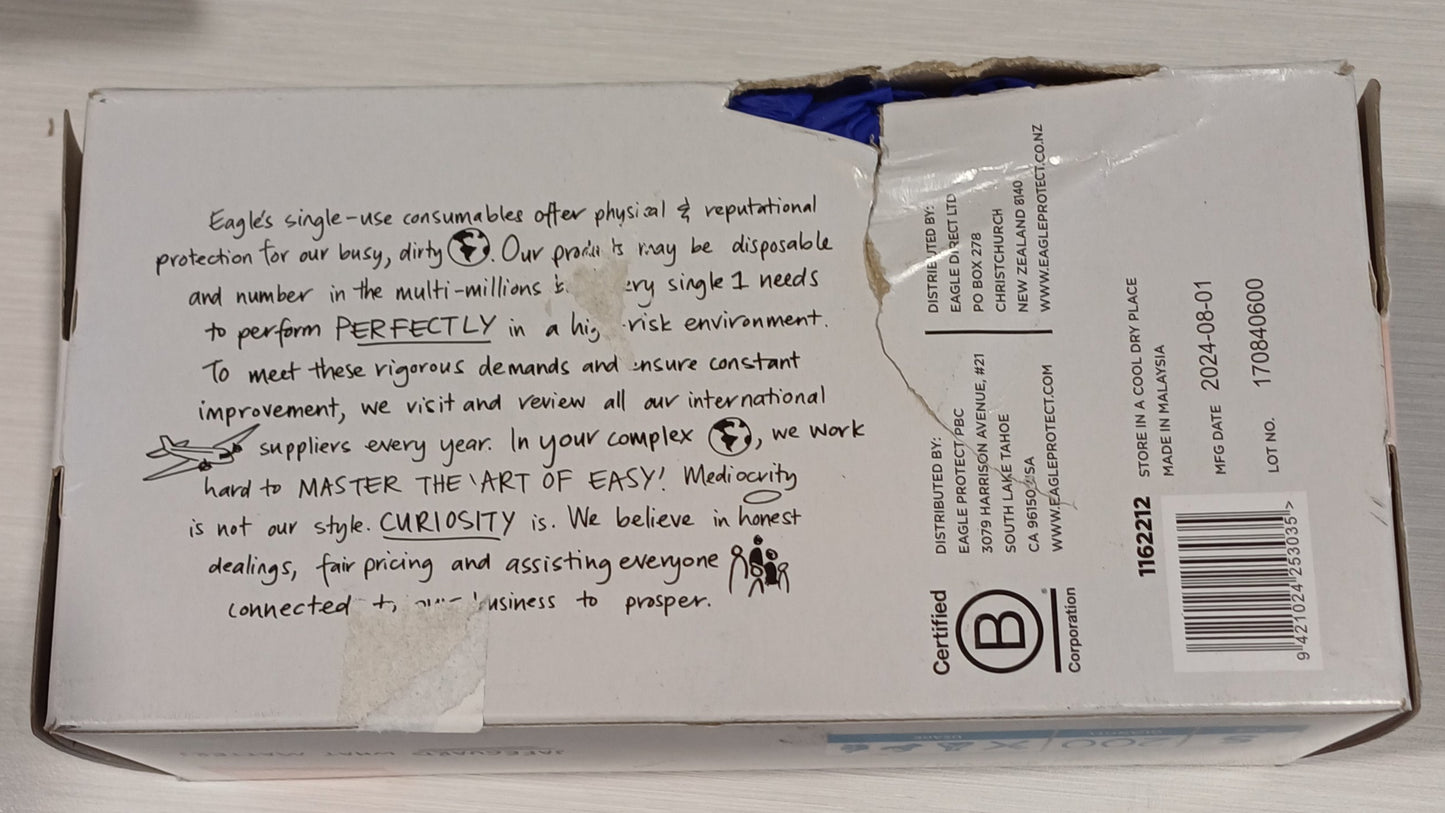 Eagle's single-use consumables offer physical & reputational
protection for our busy, dirty . Our may be disposable
and number in the multi-millions single 1 needs
to perform PERFECTLY in a risk environment.
To meet these rigorous demands and ensure constant
improvement, we visit and review all our international
suppliers every year. In your complex , we work
hard to MASTER THE ART OF EASY! Mediocrity
is not our style. CURIOSITY is. We believe in honest
dealings, fair pricing and assisting everyone
connected business to prosper.
DISTRIBUTED BY:
EAGLE DIRECT LTD
PO BOX 278
CHRISTCHURCH
NEW ZEALAND 8140
WWW.EAGLEPROTECT.CO.NZ
DISTRIBUTED BY:
EAGLE PROTECT PBC
3079 HARRISON AVENUE, #21
SOUTH LAKE TAHOE
CA 96150 USA
WWW.EAGLEPROTECT.COM
Certified
B
Corporation
1162212 STORE IN A COOL DRY PLACE
MADE IN MALAYSIA
MFG DATE 2024-08-01
LOT NO. 170840600
9 421024 253035 >
SAFEGUARD WHAT MATTERS
200